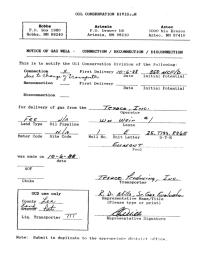 OIL CONSERVATION DIVISION
Hobbs
P.O. Box 1980
Hobbs, NM 88240
Artesia
P.O. Drawer DD
Artesia, NM 88210
Aztec
1000 Rio Brazos
Aztec, NM 87410
NOTICE OF GAS WELL - CONNECTION / RECONNECTION / DISCONNECTION
This is to notify the Oil Conservation Division of the following:
Connection X First Delivery 10-6-88
Date Initial Potential
Due to Change of Transporter
Reconnection First Delivery
Date Initial Potential
Disconnection
for delivery of gas from the Texaco, Inc.
Operator
Fee N/A
Land Type Oil Pipeline
Lease
N/A 1
Meter Code Site Code Well No. Unit Letter S-T-R
Eumont
Pool
was made on 10-6-88
date
AOF
Choke
Texaco Producing, Inc.
Transporter
OCD use only
County Lea
Liq. Transporter
Representative Name/Title
(Please type or print)
Representative Signature
Note: Submit in duplicate to the appropriate district office.